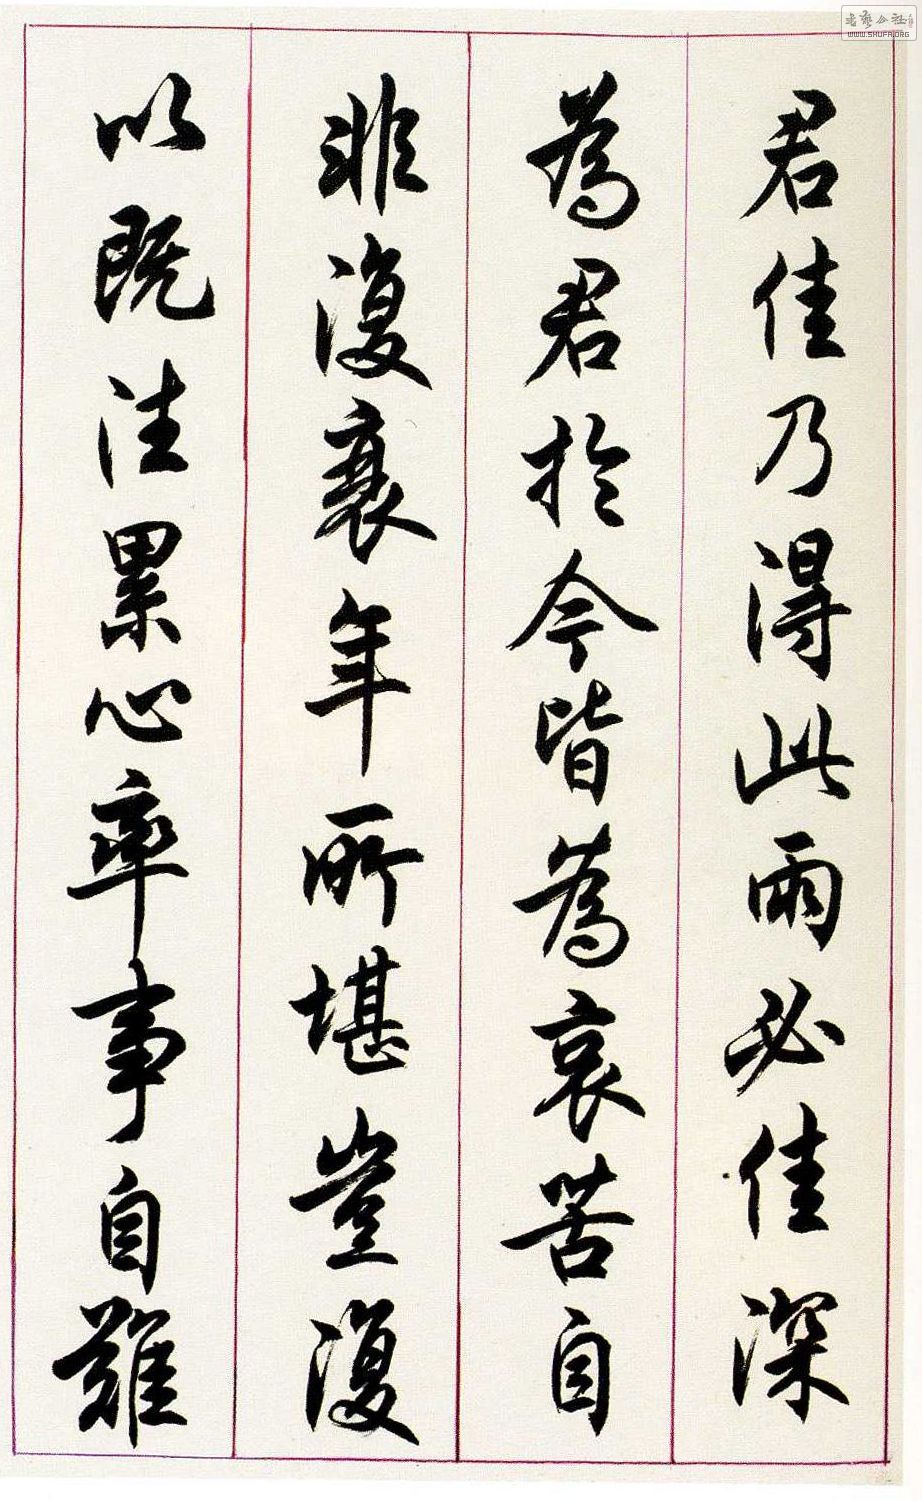 君佳乃得此雨必佳深
為君於今皆為哀苦自
非復衰年所堪豈復
以既往累心率事自難
WWW.SHUFA.ORG